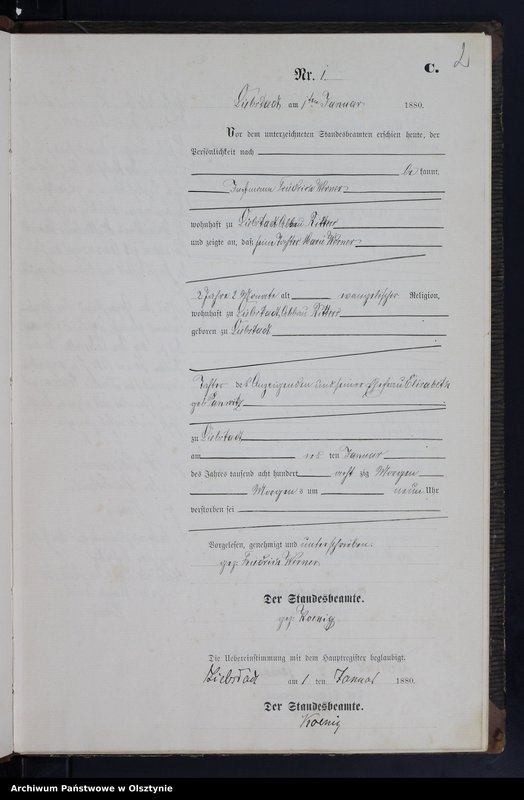 2
C.
Nr. 1.
Liebstadt am 1ten Januar 1880.
Vor dem unterzeichneten Standesbeamten erschien heute, der
Persönlichkeit nach
be kannt,
Friedrich Worner
wohnhaft zu Liebstadt Abbau
und zeigte an, daß seine Tochter Marie Worner
2 Jahre 2 Monate alt evangelischer Religion,
wohnhaft zu Liebstadt Abbau
geboren zu Liebstadt
Tochter des Anzeigenden und seiner Ehefrau Elisabeth
geb
zu Liebstadt
am ten Januar
des Jahres tausend acht hundert acht zig Morgen
Morgen s um neun Uhr
verstorben sei
Vorgelesen, genehmigt und unterschrieben.
gez. Friedrich Worner
Der Standesbeamte.
gez. Koenig
Die Uebereinstimmung mit dem Hauptregister beglaubigt.
Liebstadt am 1 ten Januar 1880.
Der Standesbeamte.
Koenig
Archiwum Państwowe w Olsztynie